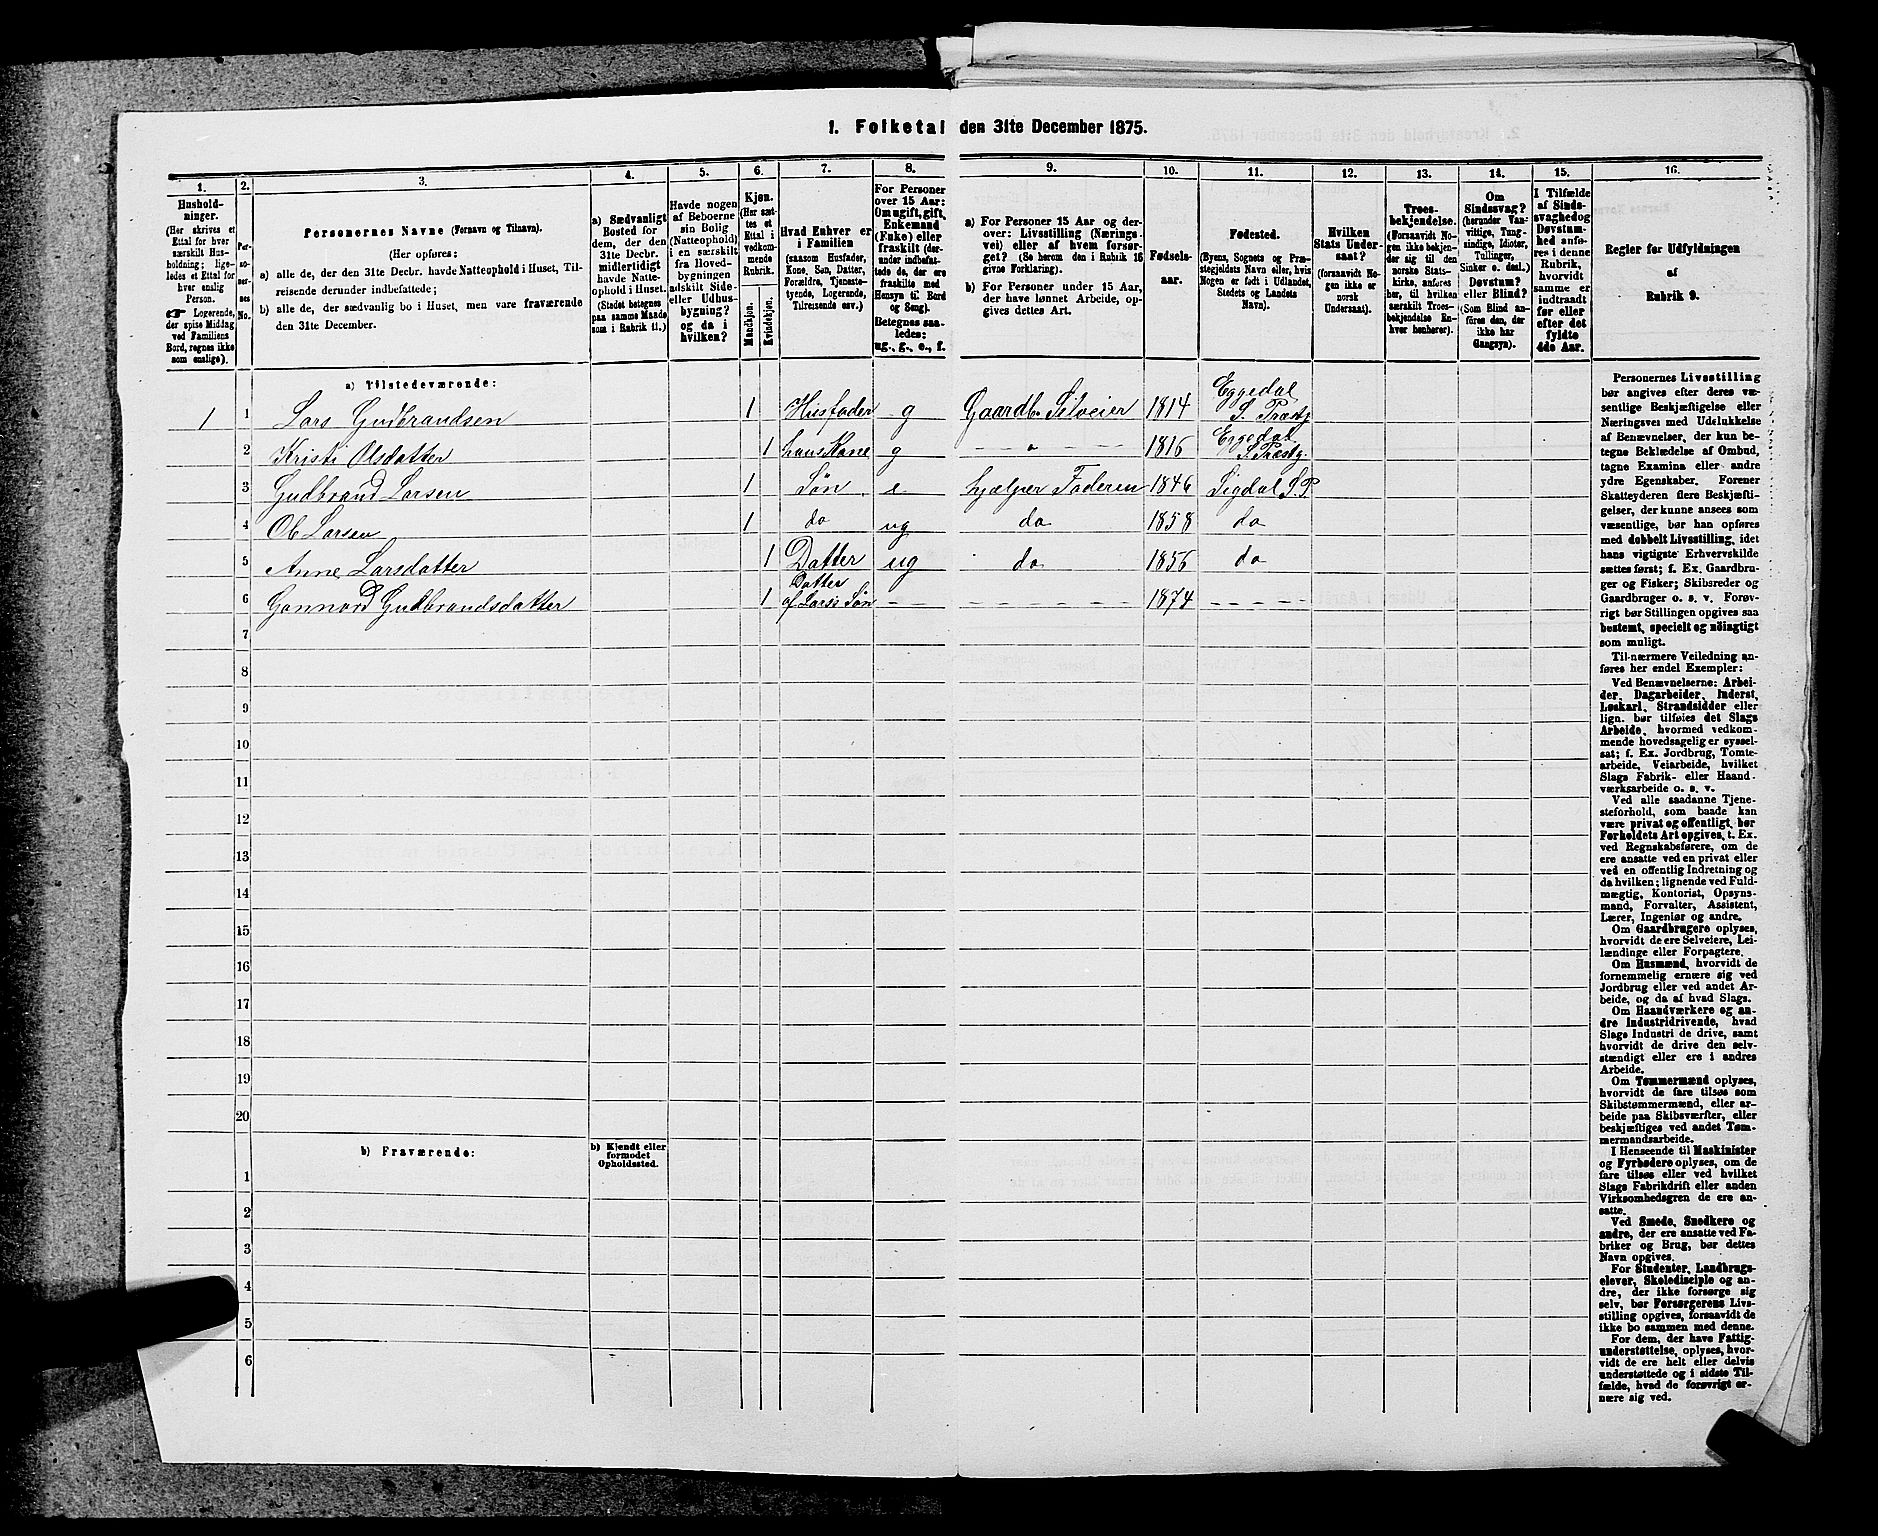 1. Folketal den 31te December 1875.
1. 2. 3. 4. 5. 6. 7. 8. 9. 10. 11. 12. 13. 14. 15. 16.
Husholdninger.
(Her skrives et
Ettal for hver
særskilt Husholdning;
ligeledes et Ettal for
hver enslig
Person.
☛ Logerende,
der spise Middag
ved Familiens
Bord, regnes ikke
som enslige).
Personernes No.
Personernes Navne (Fornavn og Tilnavn).
(Her opføres:
a) alle de, der den 31te Decbr. havde Natteophold i Huset, Tilreisende derunder indbefattede;
b) alle de, der sædvanlig bo i Huset, men vare fraværende
den 31te December.
a) Sædvanligt
Bosted for
dem, der den
31te Decbr.
midlertidigt
havde Natteophold
i Huset.
(Stedet betegnes
paa samme Maade
som i Rubrik 11.)
Havde nogen
af Beboerne
sin Bolig
(Natteophold)
i en særskilt
fra Hovedbygningen
adskilt Side-
eller Udhusbygning?
og da i
hvilken?
Kjøn.
(Her sættes
et Ettal i
vedkommende
Rubrik.
Mandkjøn.
Kvindekjøn.
Hvad Enhver er
i Familien
(saasom Husfader,
Kone, Søn, Datter,
Forældre, Tjenestetyende,
Logerende,
Tilreisende osv.)
For Personer
over 15 Aar:
Om ugift, gift,
Enkemand
(Enke) eller
fraskilt (derunder
indbefattede
de, der ere
fraskilte med
Hensyn til Bord
og Seng).
Betegnes saaledes:
ug., g., e., f.
a) For Personer 15 Aar og derover:
Livsstilling (Næringsvei)
eller af hvem forsørget?
(Se herom den i Rubrik 16
givne Forklaring).
b) For Personer under 15 Aar,
der have lønnet Arbeide, opgives
dettes Art.
Fødselsaar.
Fødested.
(Byens, Sognets og Præstegjeldets
Navn eller, hvis
Nogen er født i Udlandet,
Stedets og Landets
Navn).
Hvilken
Stats Undersaat?
(foraavidt Nogen
ikke er
norsk
Undersaat).
Troesbekjendelse.
(Forsaavidt Nogen
ikke bekjender
sig til den
norske Statskirke,
anføres
her, til hvilken
særskilt Troesbekjendelse
Enhver
henhører).
Om
Sindssvag?
(herunder Vanvittige,
Tungsindige,
Idioter,
Tullinger,
Sinker o. desl.).
Døvstum?
eller Blind?
(Som Blind anføres
den, der
ikke har
Gangsyn).
I Tilfælde
af Sindssvaghed
og
Døvstumhed
anføres
i denne
Rubrik,
hvorvidt
samme er
indtraadt
før eller
efter det
fyldte
4de Aar.
Regler før Udfyldningen
af
Rubrik 9.
a) Tilstedeværende:
1 1 Lars Gudbrandsen 1 Husfader g Gaardb. Selveier 1814 Eggedal S. Præstg
2 Kristi Olsdatter 1 hans Kone g - - " - - 1816 Eggedal S. Præstg.
3 Gudbrand Larsen 1 Søn e hjælper Faderen 1846 Sigdal S. P
4 Ol Larsen 1 do ug do 1858 do
5 Anne Larsdatter 1 Datter ug do 1856 do
6 Gunnord Gudbrandsdatter 1 Datter af Larss Søn - - - - - - - 1874 - - - - -
7
8
9
10
11
12
13
14
15
16
17
18
19
20
b) Fraværende:
b) Kjendt eller
formodet
Opholdssted.
1
2
3
4
5
6
Personernes Livsstilling
bør angives efter deres væsentlige
Beskjæftigelse eller
Næringsvei med Udelukkelse
af Benævnelser, der kun betegne
Beklædelse af Ombud,
tagne Examina eller andre
ydre Egenskaber. Forener
Skatteyderen flere Beskjæftigelser,
der kunne ansees som
væsentlige, bør han opføres
med dobbelt Livsstilling, idet
hans vigtigste Erhvervskilde
sættes først; f. Ex. Gaardbruger
og Fisker; Skibsreder og
Gaardbruger o. s. v. Forøvrigt
bør Stillingen opgives saa
bestemt, specielt og nöiagtigt
som muligt.
Til nærmere Veiledning anføres
her endel Exempler:
Ved Benævnelserne: Arbeider,
Dagarbeider, Inderst,
Løskarl, Strandsidder eller
lign. bør tilføies det Slags
Arbeide, hvormed vedkommende
hovedsagelig er sysselsat;
f. Ex. Jordbrug, Tomtearbeide,
Veiarbeide, hvilket
Slags Fabrik- eller Haandværksarbeide
o. s. v.
Ved alle saadanne Tjenesteforhold,
som baade kan
være privat og offentligt, bør
Forholdets Art opgives, t. Ex.
ved Regnskabsførere, om de
ere ansatte ved en privat eller
ved en offentlig Indretning og
da hvilken; lignende ved Fuldmægtig,
Kontorist, Opsynsmand,
Forvalter, Assistent,
Lærer, Ingeniør og andre.
Om Gaardbrugere oplyses,
hvorvidt de ere Selveiere, Leilændinge
eller Forpagtere.
Om Husmænd, hvorvidt de
fornemmelig ernære sig ved
Jordbrug eller ved andet Arbeide,
og da af hvad Slags.
Om Haandværkere og andre
Industridrivende, hvad
Slags Industri de drive, samt
hvorvidt de drive den selvstændigt
eller ere i andres
Arbeide.
Om Tømmermænd oplyses,
hvorvidt de fare tilsøs som
Skibstømmermænd, eller arbeide
paa Skibsværfter, eller
beskjæftiges ved andet Tømmermandsarbeide.
I Henseende til Maskinister
og Fyrbødere oplyses, om de
fare tilsøs eller ved hvilket
Slags Fabrikdrift eller anden
Virksomhedsgren de ere ansatte.
Ved Smede, Snedkere og
andre, der ere ansatte ved Fabriker
og Brug, bør dettes
Navn opgives.
For Studenter, Landbrugselever,
Skoledisciple og andre,
der ikke forsørge sig
selv, bør Forsørgerens Livsstilling
opgives, forsaavidt de
ikke bo sammen med denne.
For dem, der have Fattigunderstøttelse,
oplyses, hvorvidt
de ere helt eller delvis
understøttede og i sidste Tilfælde,
hvad de forøvrigt ernære
sig ved.